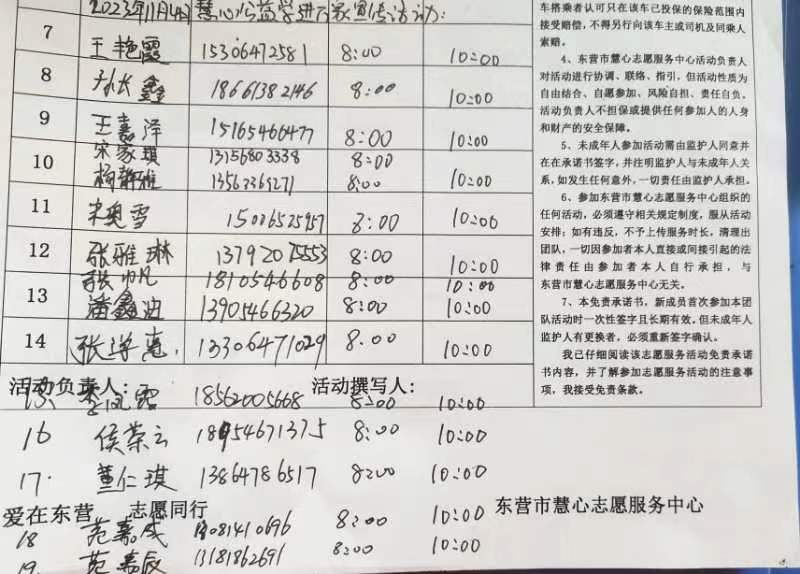 2023年11月4日慧心公益学进行家宣传活动:
7 王艳霞 15306472581 8:00 10:00
8 孙长鑫 18661382146 8:00 10:00
9 王嘉泽 15165466477 8:00 10:00
宋家琪 13156803338 8:00 10:00
10 杨静雅 13563369271 8:00 10:00
11 宋奥雪 8:00 10:00
12 张雅琳 13792075553 8:00 10:00
张帅凡 18105466608 8:00 10:00
13 潘鑫迪 13905466320 8:00 10:00
14 张学惠 13306471029 8:00 10:00
活动负责人: 活动撰写人:
15 18562005668 8:00 10:00
16 侯荣云 18954671375 8:00 10:00
17. 董仁琪 13864786517 8:00 10:00
爱在东营 志愿同行 东营市慧心志愿服务中心
18 范嘉成 8:00 10:00
19 范嘉辰 13181862691 8:00 10:00
车搭乘者认可只在该车已投保的保险范围内
接受赔偿,不得另行向该车主或司机及同乘人
索赔。
4、东营市慧心志愿服务中心活动负责人
对活动进行协调、联络、指引,但活动性质为
自由结合、自愿参加、风险自担、责任自负。
活动负责人不担保或提供任何参加人的人身
和财产的安全保障。
5、未成年人参加活动需由监护人同意并
在在承诺书签字,并注明监护人与未成年人关
系,如发生任何意外,一切责任由监护人承担。
6、参加东营市慧心志愿服务中心组织的
任何活动,必须遵守相关规定制度,服从活动
安排;如有违反,不予上传服务时长,清理出
团队,一切因参加者本人直接或间接引起的法
律责任由参加者本人自行承担,与
东营市慧心志愿服务中心无关。
7、本免责承诺书,新成员首次参加本团
队活动时一次性签字且长期有效。但未成年人
监护人有更换者,必须重新签字确认。
我已仔细阅读该志愿服务活动免责承诺
书内容,并了解参加志愿服务活动的注意事
项,我接受免责条款。